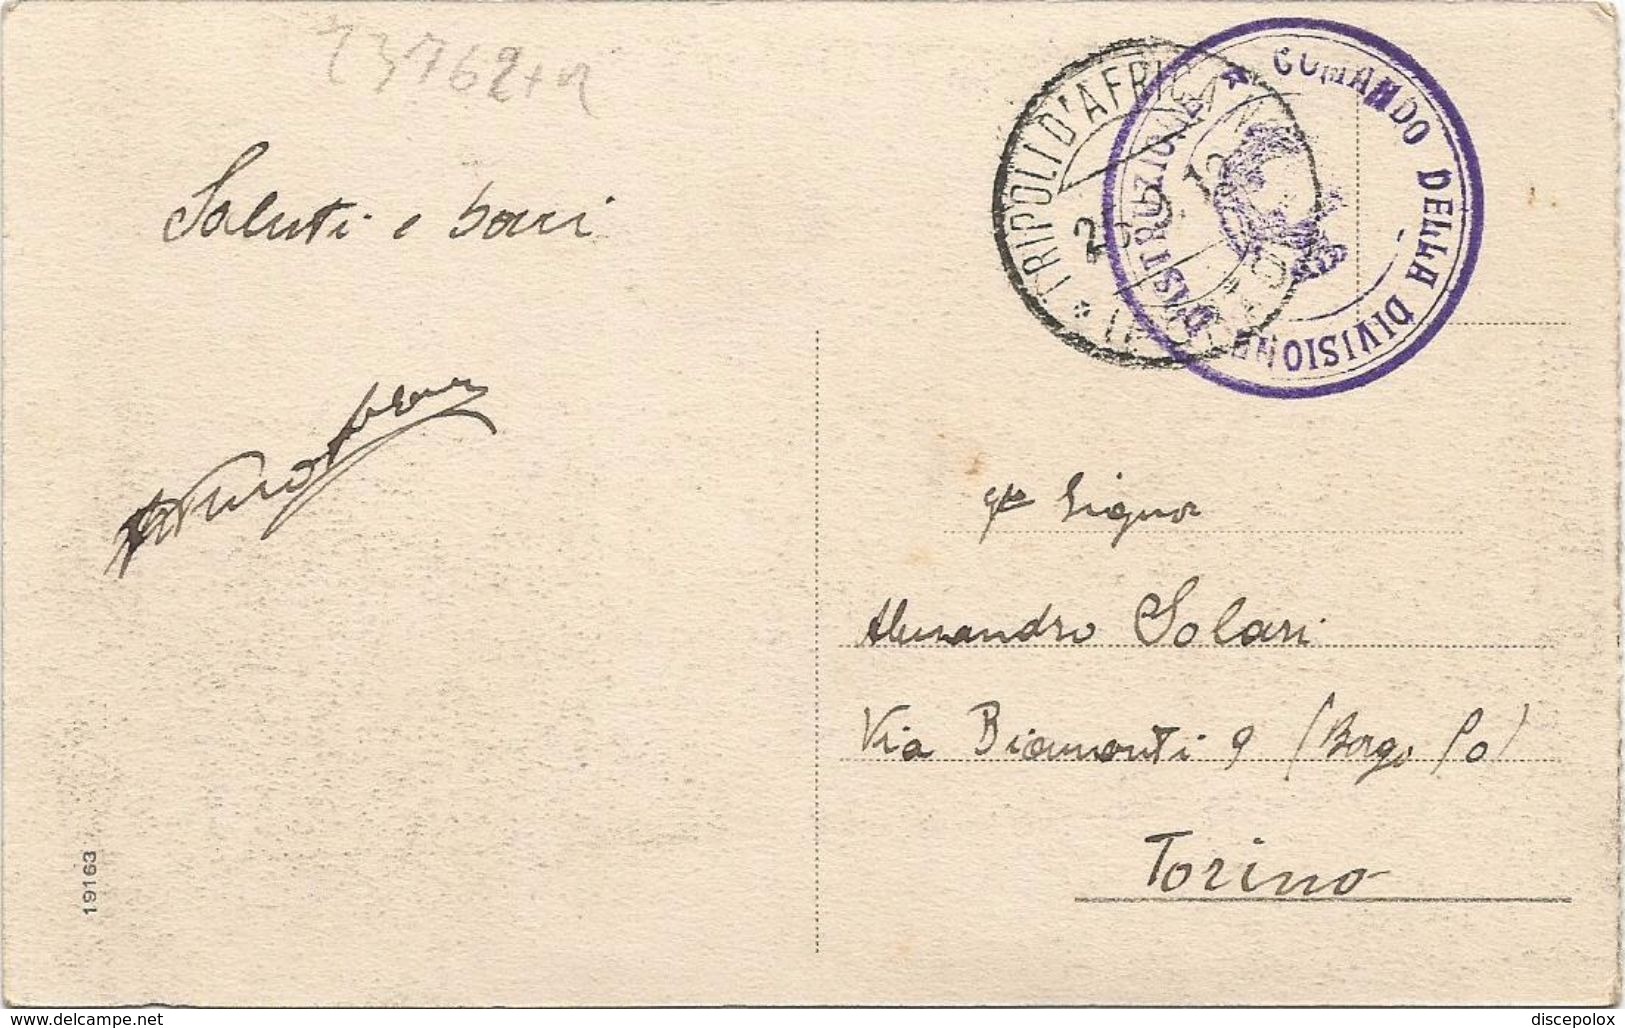 23762+a
Saluti e baci
TRIPOLI D'AFRICA
25 12
COMANDO DELLA DIVISIONE D'ISTRUZIONE
Signor
Alessandro Solari
Via Biamonti 9 (Borgo Po)
Torino
19163
www.delcampe.net
discepolox